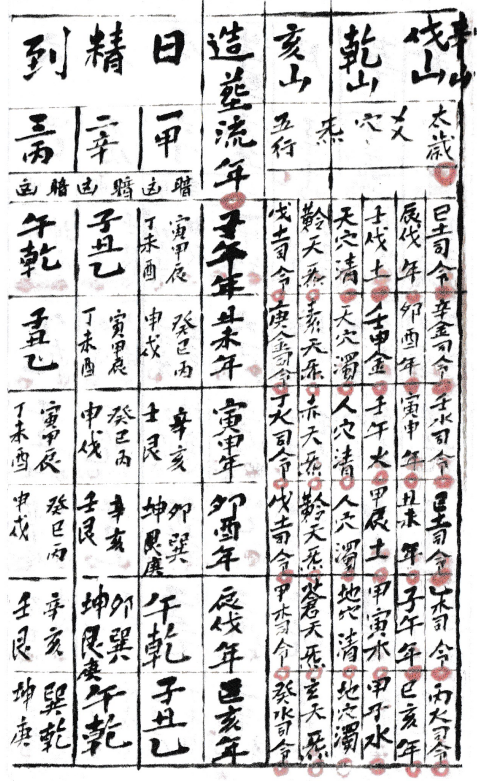 辛山
戌山
乾山
亥山
太歲
穴
炁
五行
己土司令 辛金司令 壬水司令 己土司令 乙木司令 丙火司令
辰戌年 卯酉年 寅申年 丑未年 子午年 巳亥年
壬戌土 壬申金 壬午 甲辰土 甲寅水 甲子水
天穴清 天穴濁 人穴清 人穴濁 地穴清 地穴濁
黅天炁 素天炁 赤天炁 黅天炁 蒼天炁 玄天炁
戊土司令 庚金司令 丁火司令 戊土司令 甲木司令 癸水司令
造塟流年
子午年 丑未年 寅申年 卯酉年 辰戌年 巳亥年
日精到
一甲
暗凶
寅甲辰
丁未酉
癸巳丙
申戌
辛亥
壬艮
卯巽
坤艮庚
午乾
子丑乙
二辛
暗凶
子丑乙
寅甲辰
丁未酉
癸巳丙
申戌
辛亥
壬艮
卯巽
坤艮庚
午乾
三丙
暗凶
午乾
子丑乙
寅甲辰
丁未酉
癸巳丙
申戌
辛亥
壬艮
巽乾
坤庚